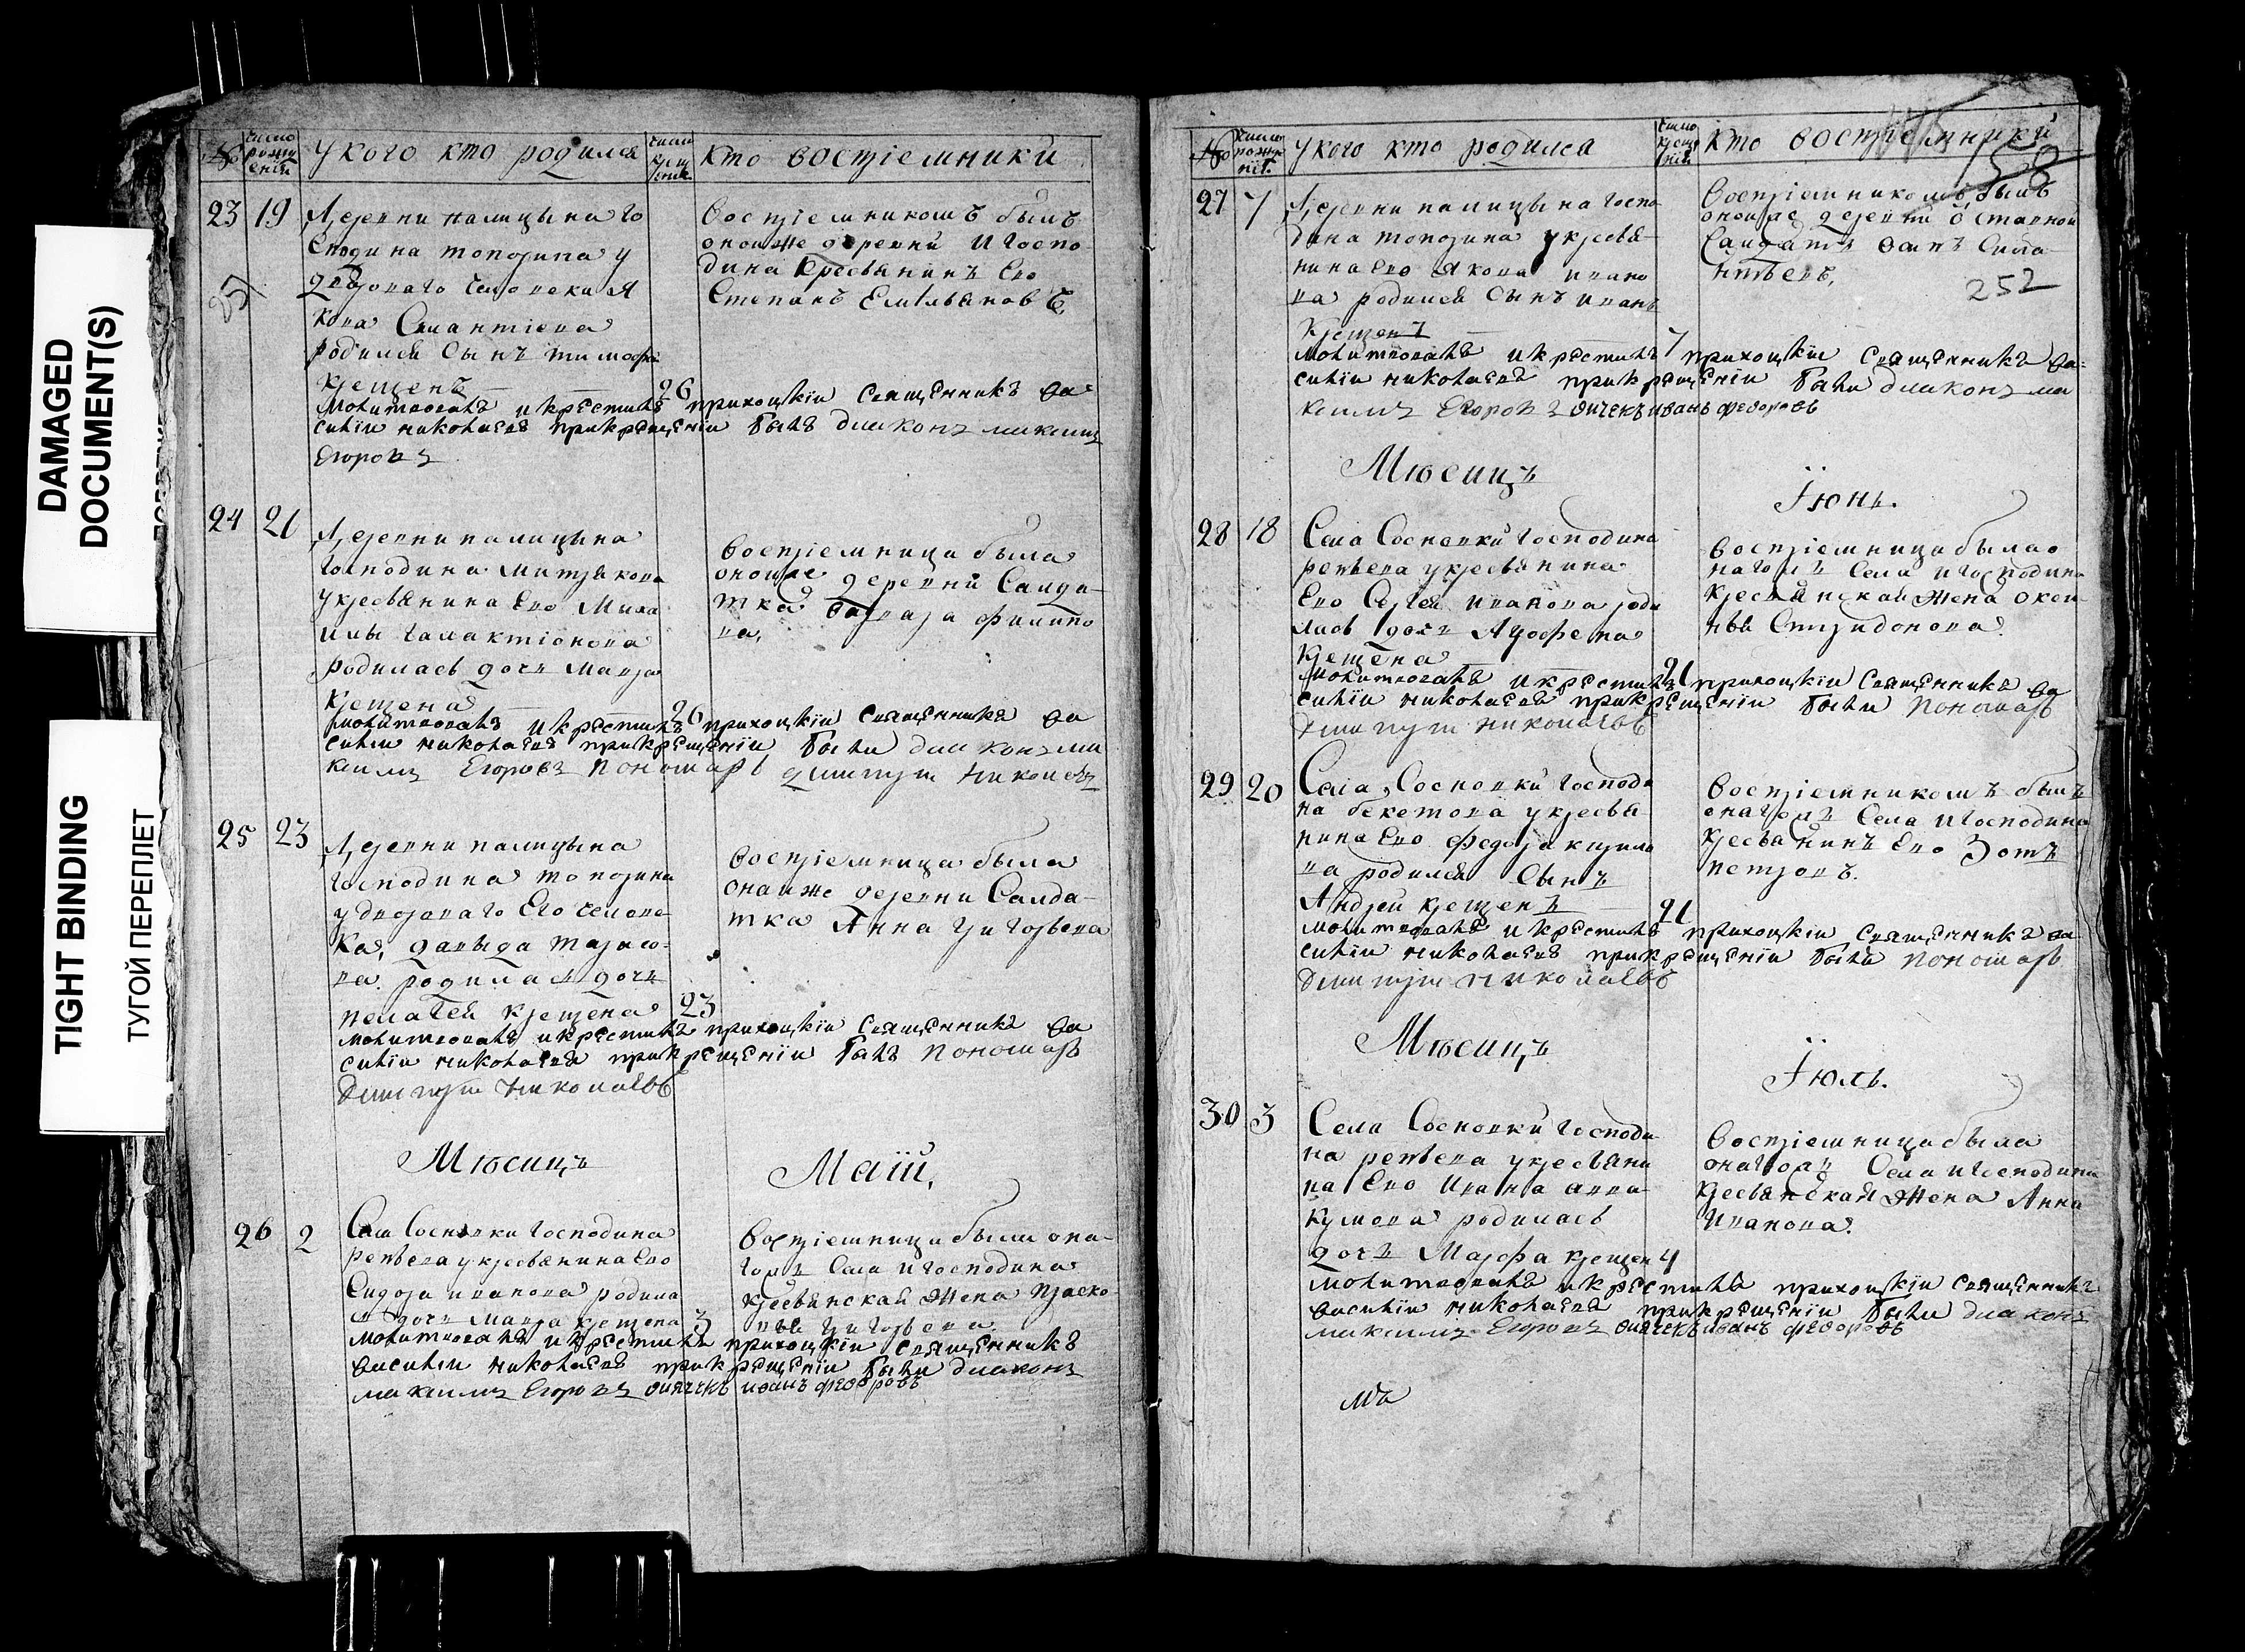 DAMAGED
DOCUMENT(S)
TIGHT BINDING
ТУГОЙ ПЕРЕПЛЕТ
№ число рожденiй У кого кто родился число крещенiя Кто востріемники
23 19 Деревни палицына го
сподина топорнина у
дворонаго человека я
кова
родился сынъ тимофей
крещенъ 26
востріемникомъ былъ
оноиже деревни и госпо-
дина кресьянинъ Его
Степанъ Емильяновъ
молитвовалъ и крестилъ приходцкiи священникъ ва
силiи николаевъ при крещенiи былъ диаконъ максимъ
Егоровъ
24 21 Деревни палицына
господина митрякова
у кресьянина Его Миха
илы галактiонова
родилась дочь Мавра
крещена 26
востріемница была
оноиже деревни Салда-
тка варвара филипо
ва,
молитвовалъ и крестилъ приходцкiи священникъ ва
силiи николаевъ при крещенiи были диаконъ ма
ксимъ Егоровъ пономарь димитрии николаевъ
25 23 Деревни палицына
господина топорнина
у дворонаго Его челове-
ка, давыда тарасо-
ва родилась дочь
пелагея крещена 23
востріемница была
оноиже деревни Салда-
тка Анна григорьева
молитвовалъ и крестилъ приходцкiи священникъ ва
силiи николаевъ при крещенiи былъ пономарь
димитрии николаевъ
Мѣсицъ Маiй,
26 2 Села Сосновки господина
репьева у кресьянина Его
Сидора иванова родила
сь дочь Мавра крещена 3
востріемница была она-
гожъ Села и господина
кресьянская жена праско-
вья григорьева
молитвовалъ и крестилъ приходцкiи священникъ
василiи николаевъ при крещенiи были диаконъ
максимъ Егоровъ дичекъ иванъ федоровъ
№ число рожденiя У кого кто родился число крещенiя Кто востріемники
158
27 7 Деревни палицына госпо
дина топорнина у кресья-
нина Его якова ивано
ва родился сынъ иванъ
крещенъ 7
востріемникомъ былъ
оноиже деревни отставной
Салдатъ
252
молитвовалъ и крестилъ приходцкiи священникъ ва-
силiи николаевъ при крещенiи были диаконъ ма
ксимъ Егоровъ дичекъ иванъ федоровъ
Мѣсицъ Iюнь.
28 18 Села Сосновки господина
репьева у кресьянина
Его Сергея иванова роди
лась дочь Агрофена
крещена 21
востріемница была о
нагожъ Села и господина
кресьянская жена оксе
нья Спиридонова.
молитвовалъ и крестилъ приходцкiи священникъ ва
силiи николаевъ при крещенiи были пономарь
димитрии николаевъ
29 20 Села Сосновки господи
на бекетова у кресья
нина Его федора кирило
ва родился сынъ
Андрей крещенъ 21
востріемникомъ былъ
онагожъ Села и господина
кресьянинъ Его Зотъ
петровъ.
молитвовалъ и крестилъ приходцкiи священникъ ва
силiи николаевъ при крещенiи были пономарь
димитрии николаевъ
Мѣсицъ Iюль.
30 3 Села Сосновки господи-
на репьева у кресьяни
на Его Ивана авва-
кумова родилась
дочь Марфа крещен 4
востріемница была
онагожъ Села и господина
кресьянская жена Анна
Иванова.
молитвовалъ и крестилъ приходцкiи священникъ
василiи николаевъ при крещенiи были диаконъ
максимъ Егоровъ дичекъ иванъ федоровъ